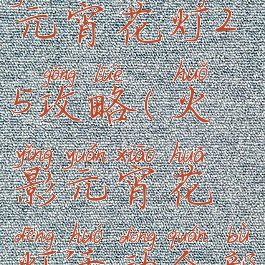 元宵花灯2
gōng lüè huǒ
5攻略(火
yǐng yuán xiāo huā
影元宵花
dēng huó dòng quán bù
灯活动全部